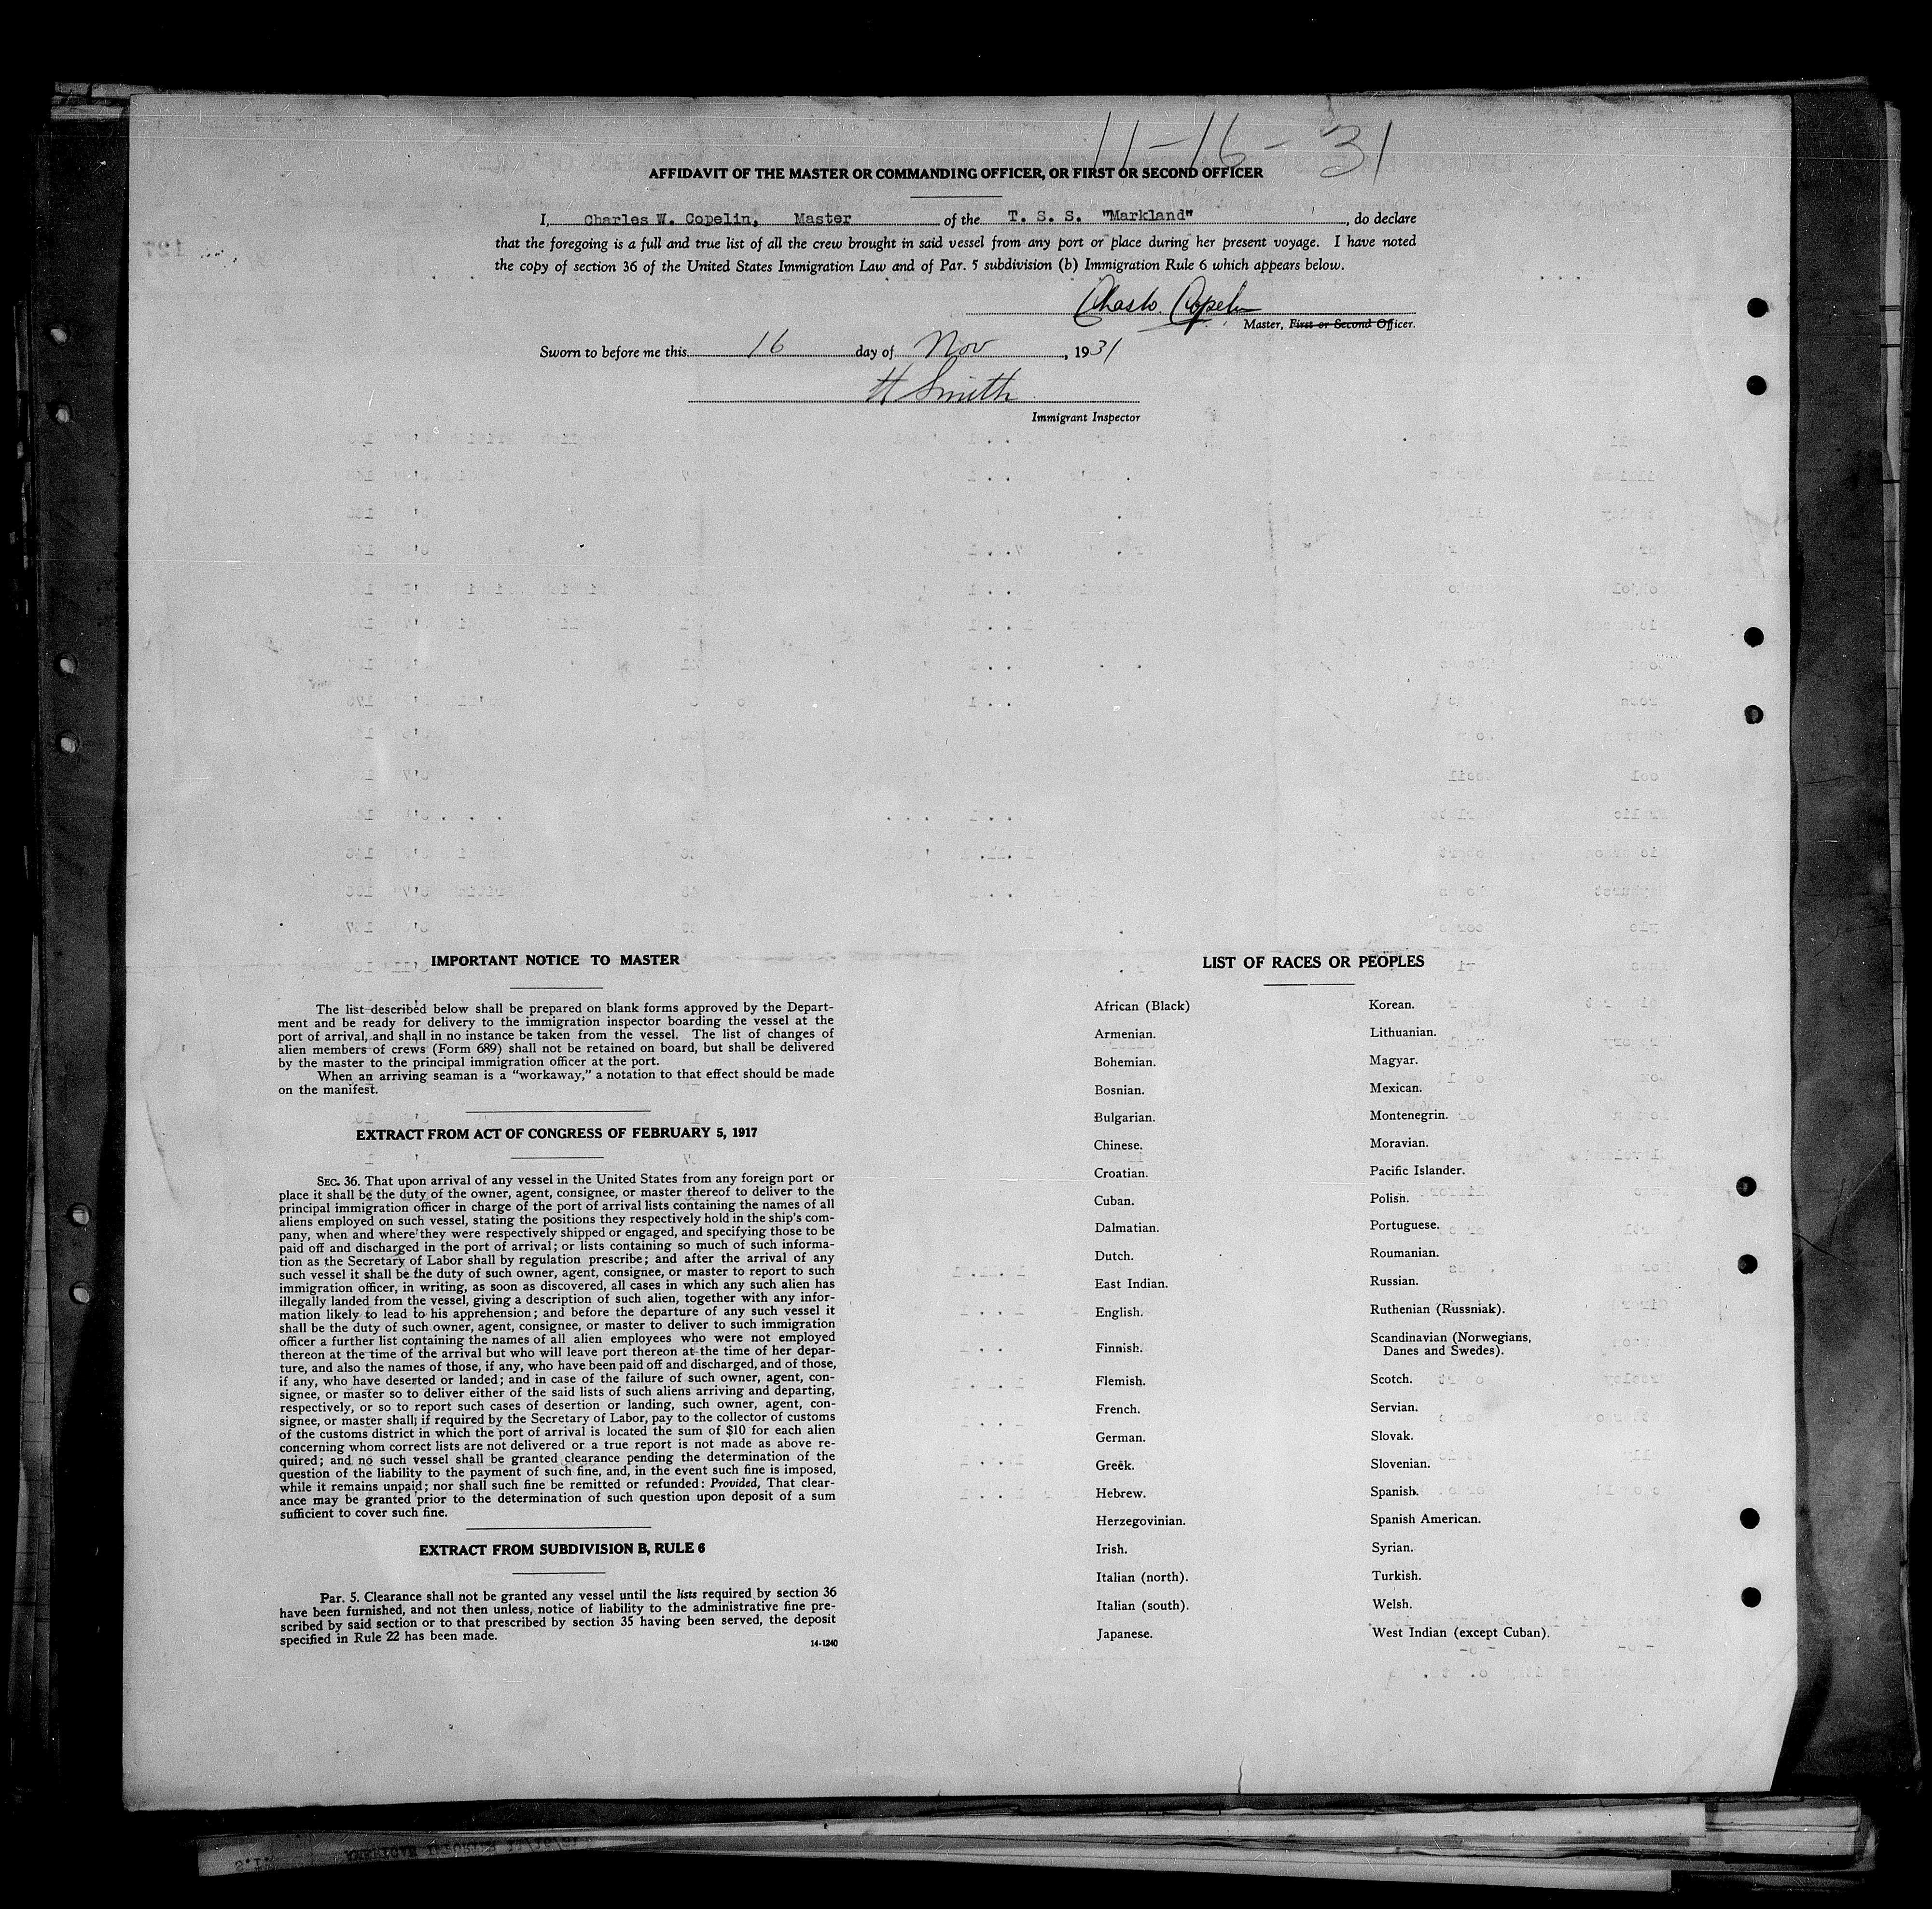 11-16-31
AFFIDAVIT OF THE MASTER OR COMMANDING OFFICER, OR FIRST OR SECOND OFFICER
I, Charles W. Copelin, Master of the T. S. S. "Markland", do declare
that the foregoing is a full and true list of all the crew brought in said vessel from any port or place during her present voyage. I have noted
the copy of section 36 of the United States Immigration Law and of Par. 5 subdivision (b) Immigration Rule 6 which appears below.
Chas W. Copelin
Master, First or Second Officer.
Sworn to before me this 16 day of Nov, 1931
H Smith
Immigrant Inspector
IMPORTANT NOTICE TO MASTER
The list described below shall be prepared on blank forms approved by the Depart-
ment and be ready for delivery to the immigration inspector boarding the vessel at the
port of arrival, and shall in no instance be taken from the vessel. The list of changes of
alien members of crews (Form 689) shall not be retained on board, but shall be delivered
by the master to the principal immigration officer at the port.
When an arriving seaman is a “workaway,” a notation to that effect should be made
on the manifest.
EXTRACT FROM ACT OF CONGRESS OF FEBRUARY 5, 1917
SEC. 36. That upon arrival of any vessel in the United States from any foreign port or
place it shall be the duty of the owner, agent, consignee, or master thereof to deliver to the
principal immigration officer in charge of the port of arrival lists containing the names of all
aliens employed on such vessel, stating the positions they respectively hold in the ship's com-
pany, when and where they were respectively shipped or engaged, and specifying those to be
paid off and discharged in the port of arrival; or lists containing so much of such informa-
tion as the Secretary of Labor shall by regulation prescribe; and after the arrival of any
such vessel it shall be the duty of such owner, agent, consignee, or master to report to such
immigration officer, in writing, as soon as discovered, all cases in which any such alien has
illegally landed from the vessel, giving a description of such alien, together with any infor-
mation likely to lead to his apprehension; and before the departure of any such vessel it
shall be the duty of such owner, agent, consignee, or master to deliver to such immigration
officer a further list containing the names of all alien employees who were not employed
thereon at the time of the arrival but who will leave port thereon at the time of her depar-
ture, and also the names of those, if any, who have been paid off and discharged, and of those,
if any, who have deserted or landed; and in case of the failure of such owner, agent, con-
signee, or master so to deliver either of the said lists of such aliens arriving and departing,
respectively, or so to report such cases of desertion or landing, such owner, agent, con-
signee, or master shall, if required by the Secretary of Labor, pay to the collector of customs
of the customs district in which the port of arrival is located the sum of $10 for each alien
concerning whom correct lists are not delivered or a true report is not made as above re-
quired; and no such vessel shall be granted clearance pending the determination of the
question of the liability to the payment of such fine, and, in the event such fine is imposed,
while it remains unpaid; nor shall such fine be remitted or refunded: Provided, That clear-
ance may be granted prior to the determination of such question upon deposit of a sum
sufficient to cover such fine.
EXTRACT FROM SUBDIVISION B, RULE 6
Par. 5. Clearance shall not be granted any vessel until the lists required by section 36
have been furnished, and not then unless, notice of liability to the administrative fine pre-
scribed by said section or to that prescribed by section 35 having been served, the deposit
specified in Rule 22 has been made.
14-1240
LIST OF RACES OR PEOPLES
African (Black)
Armenian.
Bohemian.
Bosnian.
Bulgarian.
Chinese.
Croatian.
Cuban.
Dalmatian.
Dutch.
East Indian.
English.
Finnish.
Flemish.
French.
German.
Greek.
Hebrew.
Herzegovinian.
Irish.
Italian (north).
Italian (south).
Japanese.
Korean.
Lithuanian.
Magyar.
Mexican.
Montenegrin.
Moravian.
Pacific Islander.
Polish.
Portuguese.
Roumanian.
Russian.
Ruthenian (Russniak).
Scandinavian (Norwegians,
Danes and Swedes).
Scotch.
Servian.
Slovak.
Slovenian.
Spanish.
Spanish American.
Syrian.
Turkish.
Welsh.
West Indian (except Cuban).